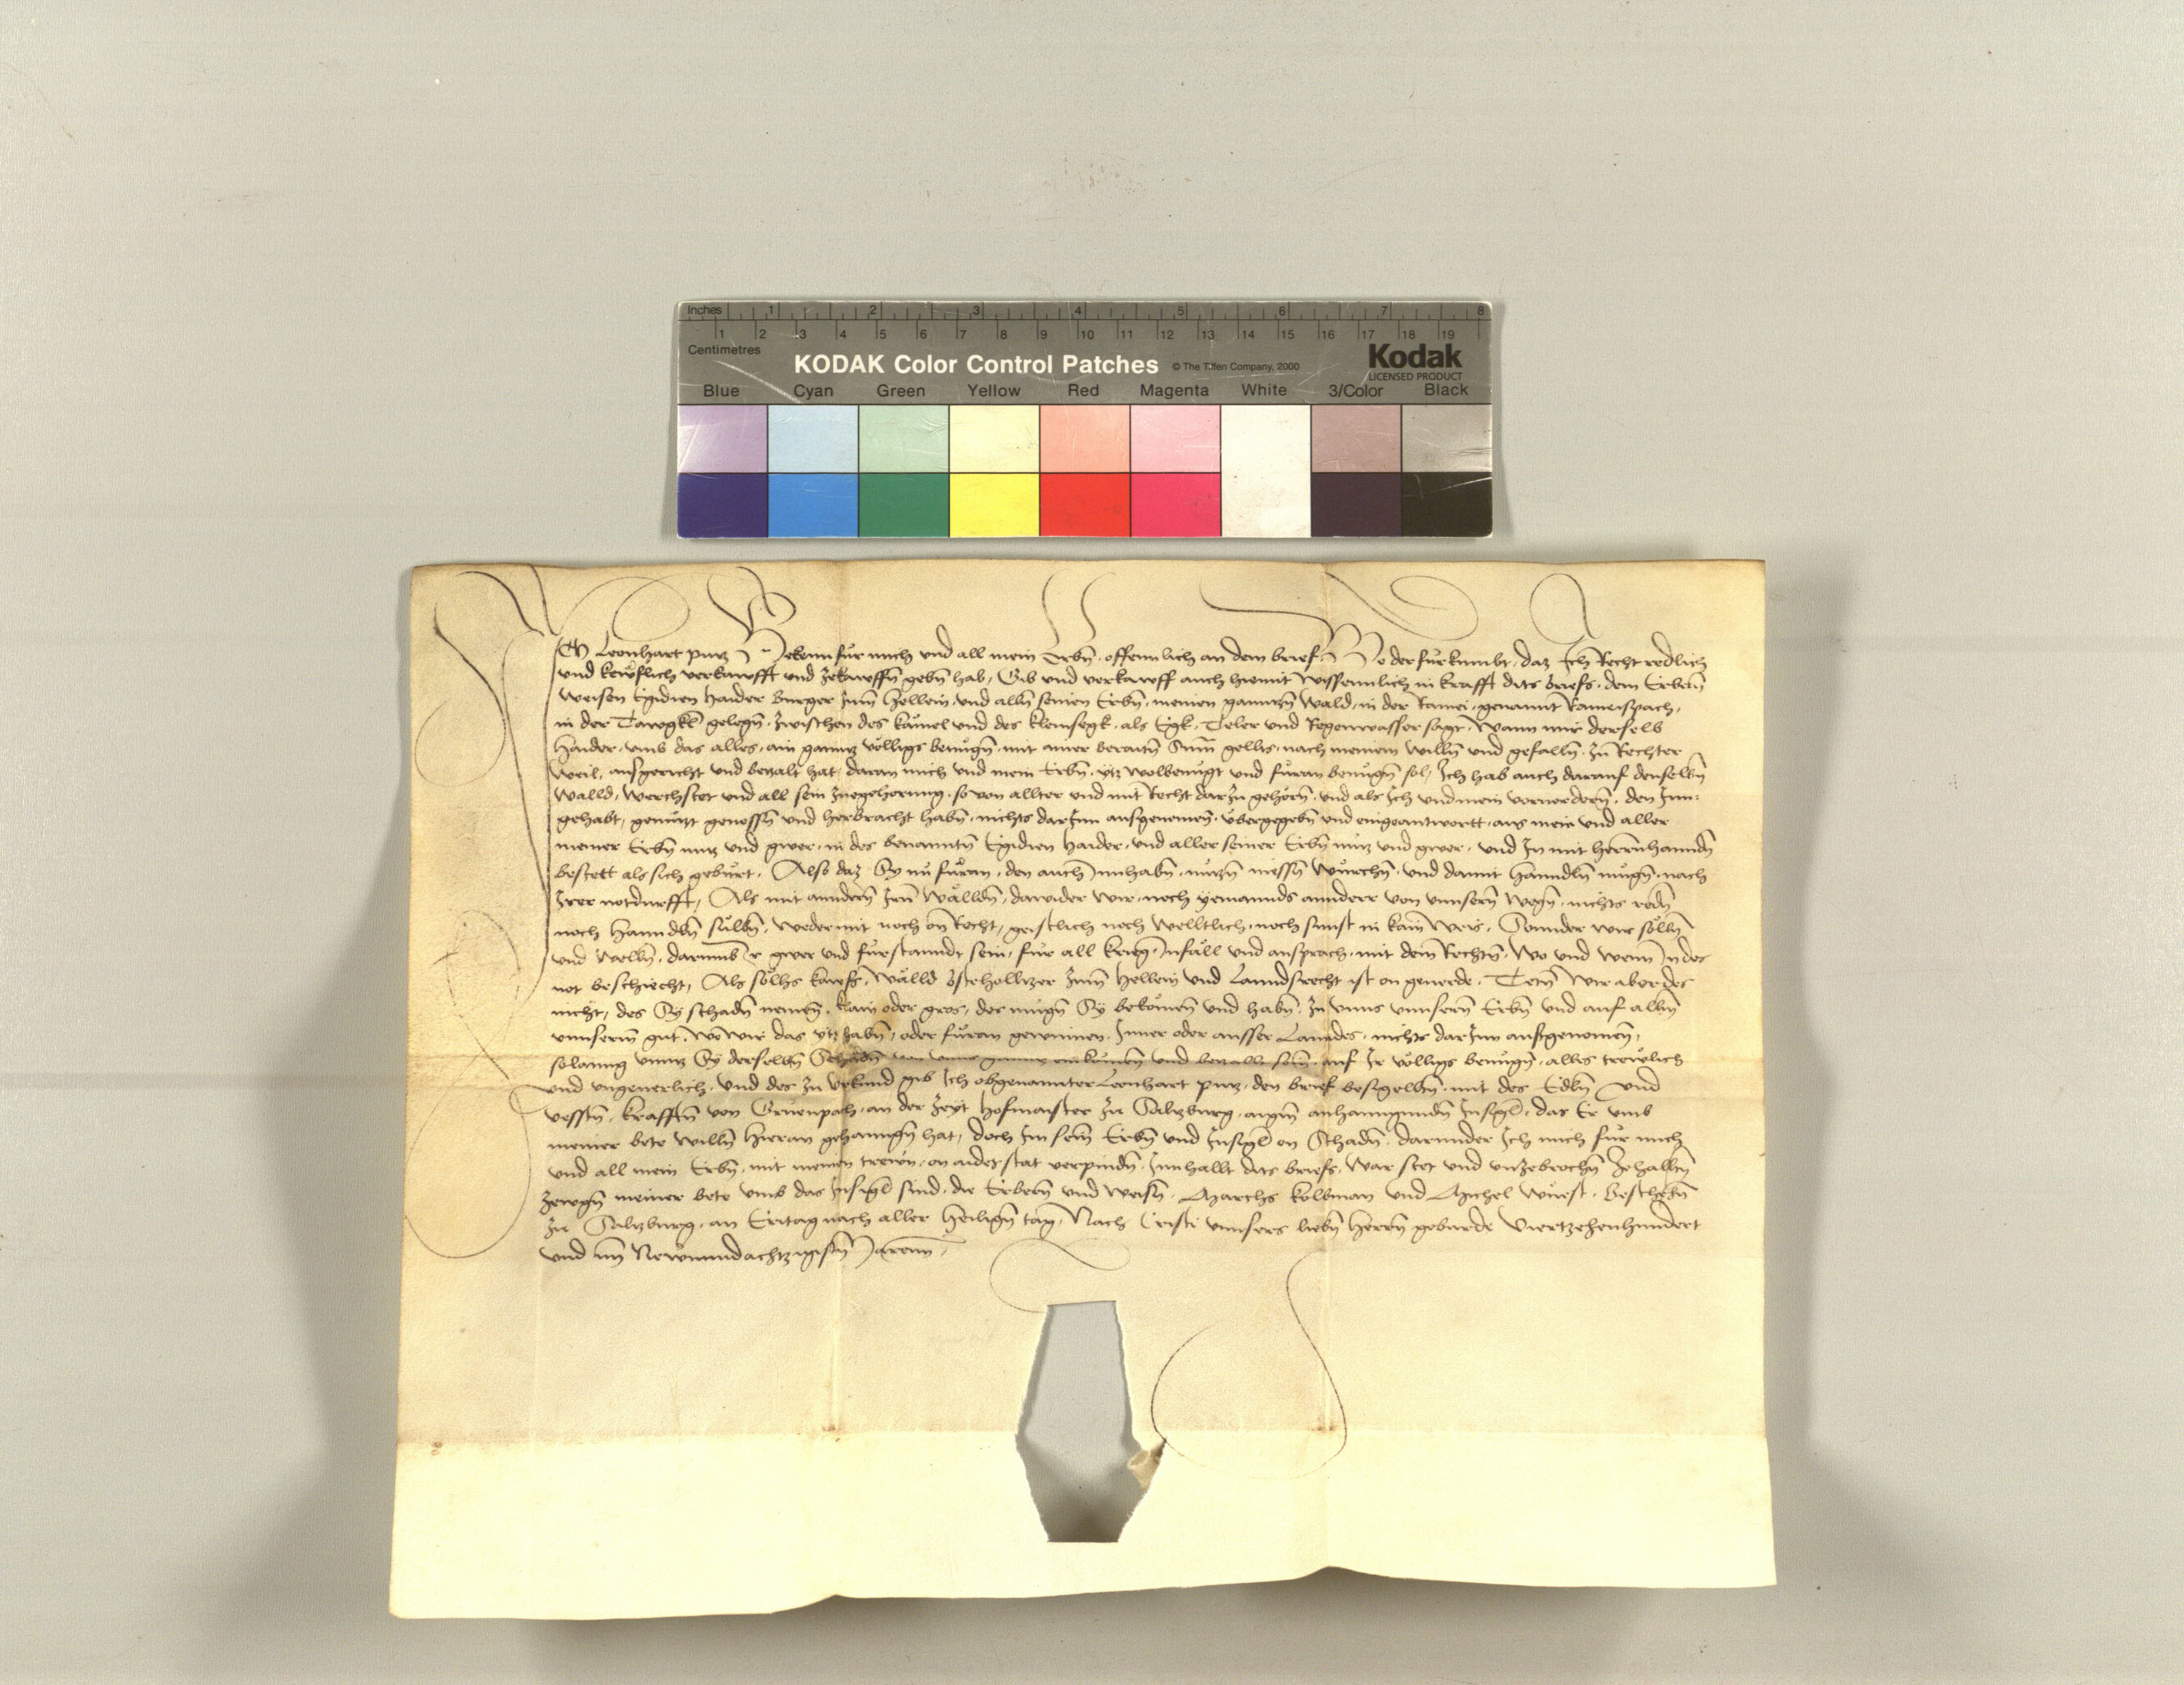 Inches 1 2 3 4 5 6 7 8
1 2 3 4 5 6 7 8 9 10 11 12 13 14 15 16 17 18 19
Centimetres
KODAK Color Control Patches © The Tiffen Company, 2000 Kodak
LICENSED PRODUCT
Blue Cyan Green Yellow Red Magenta White 3/Color Black
ICh Leonhart purz Bekenn für mich und all mein Erbn̄, offennlich an dem brief, Wo der fürkumbt, daz Ich Recht redlich
und kewflich verkawfft und zekawffn̄ gebn̄ hab, Gib und verkawff auch hiemit wissenntlich in krafft dits briefs, dem Erbern̄
Weisen Egidien Haider Burger zum̄ Hellein, und alln̄ seinen Erbn̄, meinen ganntzn̄ Wald, in der Ramei, genannt Rameispach,
in der Tawgkl gelegn̄, zwischen des kümel und des kleinsegk, als Egk, Teler und Regenwasser sagt, Wann mir derselb
Haider, umb das alles, ain ganntz völligs benügn̄, mit ainer beraitn̄ Sum̄ gellts, nach meinem willn̄ und gefalln̄, zu Rechter
Weil, ausgericht und betzalt hat, daran mich und mein Erbn̄, ytz wolbenügt und füran benügn̄ sol, Ich hab auch darauf denselbn̄
Walld, Werchstet und all sein zuegehorung, so von allter und mit Recht darzu gehörn̄, und als Ich und mein vorvordern̄, den Inn-
gehabt, genützt genossn̄ und herbracht habn̄, nichts darinn ausgenomen̄, übergegebn̄ und eingeantwortt, aus mein und aller
meiner Erbn̄ nutz und gwer, in des benanntn̄ Egidien Haider, und aller seiner Erbn̄ nutz und gwer, und In mit herrnhanndn̄
bestett als sich gebürt, Also daz Sy nu füran, den auch Innhabn̄, nützn̄ niessn̄ würchn̄, und damit hanndln̄ mügn̄, nach
Irer notdurfft, Als mit anndern̄ Irn̄ Wälldn̄, dawider wir, noch yemannds annderr von unnsern̄ wegn̄, nichts redn̄
noch hanndln̄ sülln̄, weder mit noch on̄ Recht, geistlich noch welltlich, noch sunst in kain weis, Sonnder wir sölln̄
und welln̄, darumb Ir gwer und fürstanndt sein, für all krieg, Infäll und ansprach, mit dem Rechtn̄, wo und wenn In des
not beschiecht, Als sölhs kawfs, Wälld zum̄ Hellein und Lanndsrecht ist on geuerde, Tetn̄ wir aber des
nicht, des Sy schadn̄ nemen̄, klain oder gros, des mügn̄ Sy bekomen̄ und habn̄, zu unns unnsern̄ Erbn̄ und auf alln̄
unnserm̄ gut, wo wir das ytz habn̄, oder füran gewinnen, Inner oder ausser Lanndes, nichts darinn ausgenomen̄,
solanng unntz Sy derselbn̄ Schädn̄ von unns ganntz einkomen̄ und betzallt sein̄, auf Ir völligs benügn̄, alles trewlich
und ungeuerlich, Und des zu Urkund gib Ich obgenannter Leonhart purz, den brief besigelltn̄, mit des Edln̄ und
vesstn̄, krafftn̄ von Gruenpah, an der zeyt Hofmaister zu Saltzburg, aigm̄ anhanngundn̄ Insigl̄, das Er umb
meiner bete willn̄ hieran gehanngn̄ hat, doch Im sein̄ Erbn̄ und Insigl̄ on Schadn̄, darunder Ich mich für mich
und all mein Erbn̄, mit meinen trewn, on aidet stat verpindn̄, Innhallt dits briefs, War stet und unzebrochn̄ zehalltn̄
Zewgn̄ meiner bete umb das Insigl̄ sind, die Erbern̄ und weisn̄, Marchs kolbman und Michel Wüest, Beschehn̄
zu Saltzburg, an Eritag nach aller Heilign̄ tag, Nach Cristi unnsers liebn̄ Herrn̄ geburde Viertzehenhundert
und im̄ Newnundachtzigistn̄ Jarenn̄,